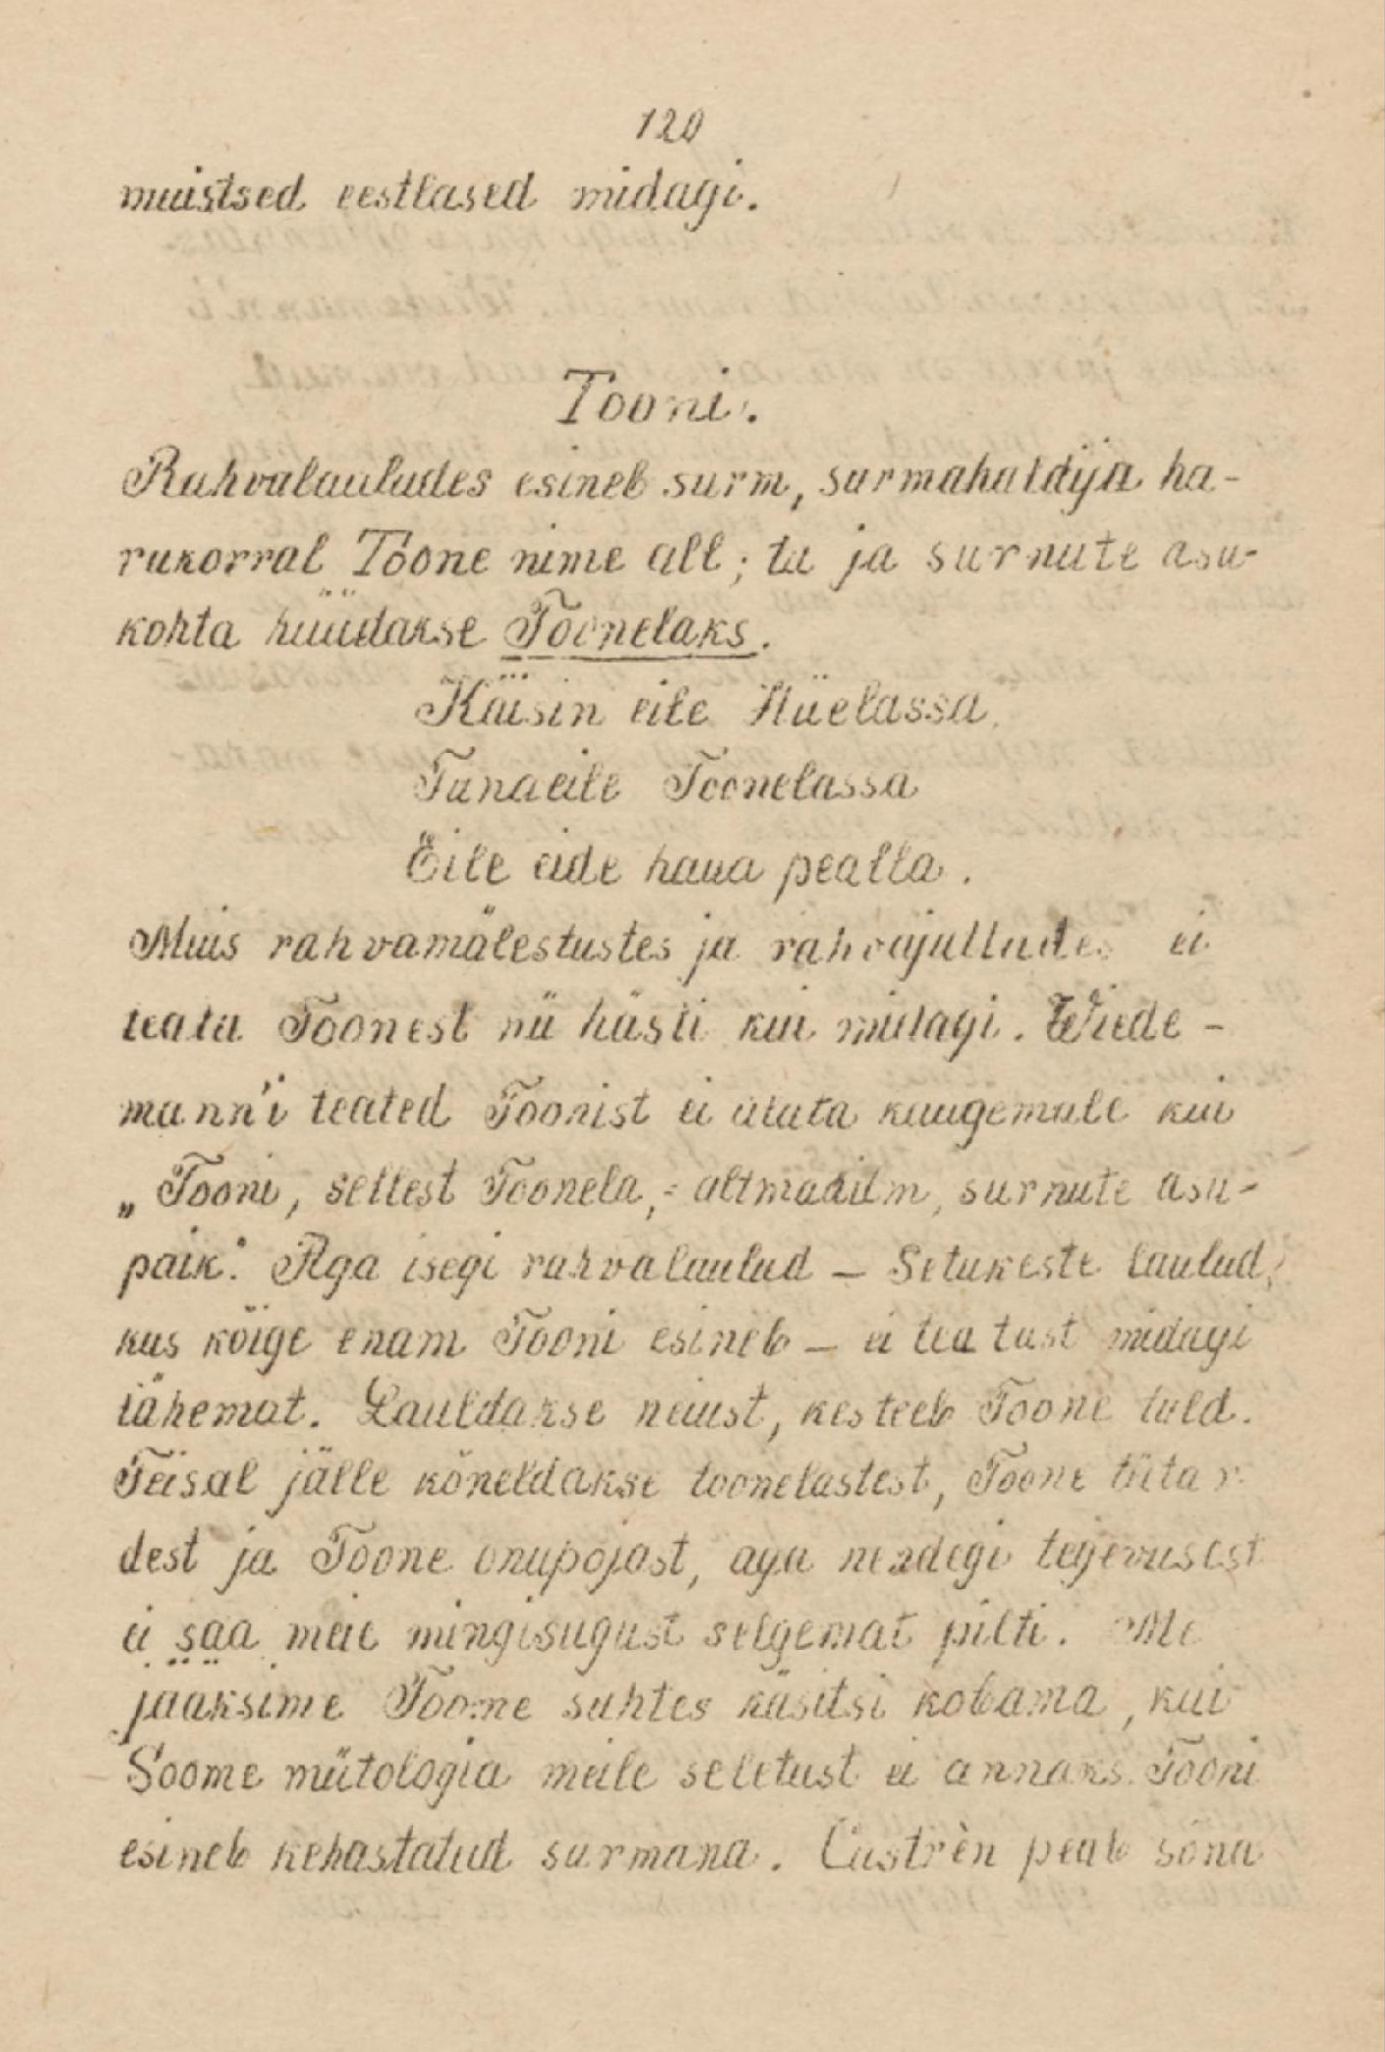 120
muistsed eestlased midagi.
Tooni.
Rahvalauludes esineb surm, surmahaldija ha-
rukorral Toone nime all; ta ja surnute asu-
kohta hüüdakse Toonelaks.
Käisin eile Hiielassa
Tunaeile Toonelassa
Eile eide haua pealla.
Muis rahvamälestustes ja rahvajuttudes ei
teata Toonest nii hästi kui midagi. Wiede-
mann'i teated Toonist ei ulata kaugemale kui
„Tooni, sellest Toonela, = altmaailm, surnute asu-
paik." Aga isegi rahvalaulud – Setukeste laulud,
kus kõige enam Tooni esineb – ei tea tast midagi
lähemat. Lauldakse neiust, kes teeb Toone tuld.
Teisal jälle kõneldakse toonelastest, Toone tütar-
dest ja Toone onupojast, aga nendegi tegevusest
ei saa meie mingisugust selgemat pilti. Me
jääksime Toone suhtes käsitsi kobama, kui
Soome mütologia meile seletust ei annaks. Tooni
esineb kehastatud surmana. Castrèn peab sõna